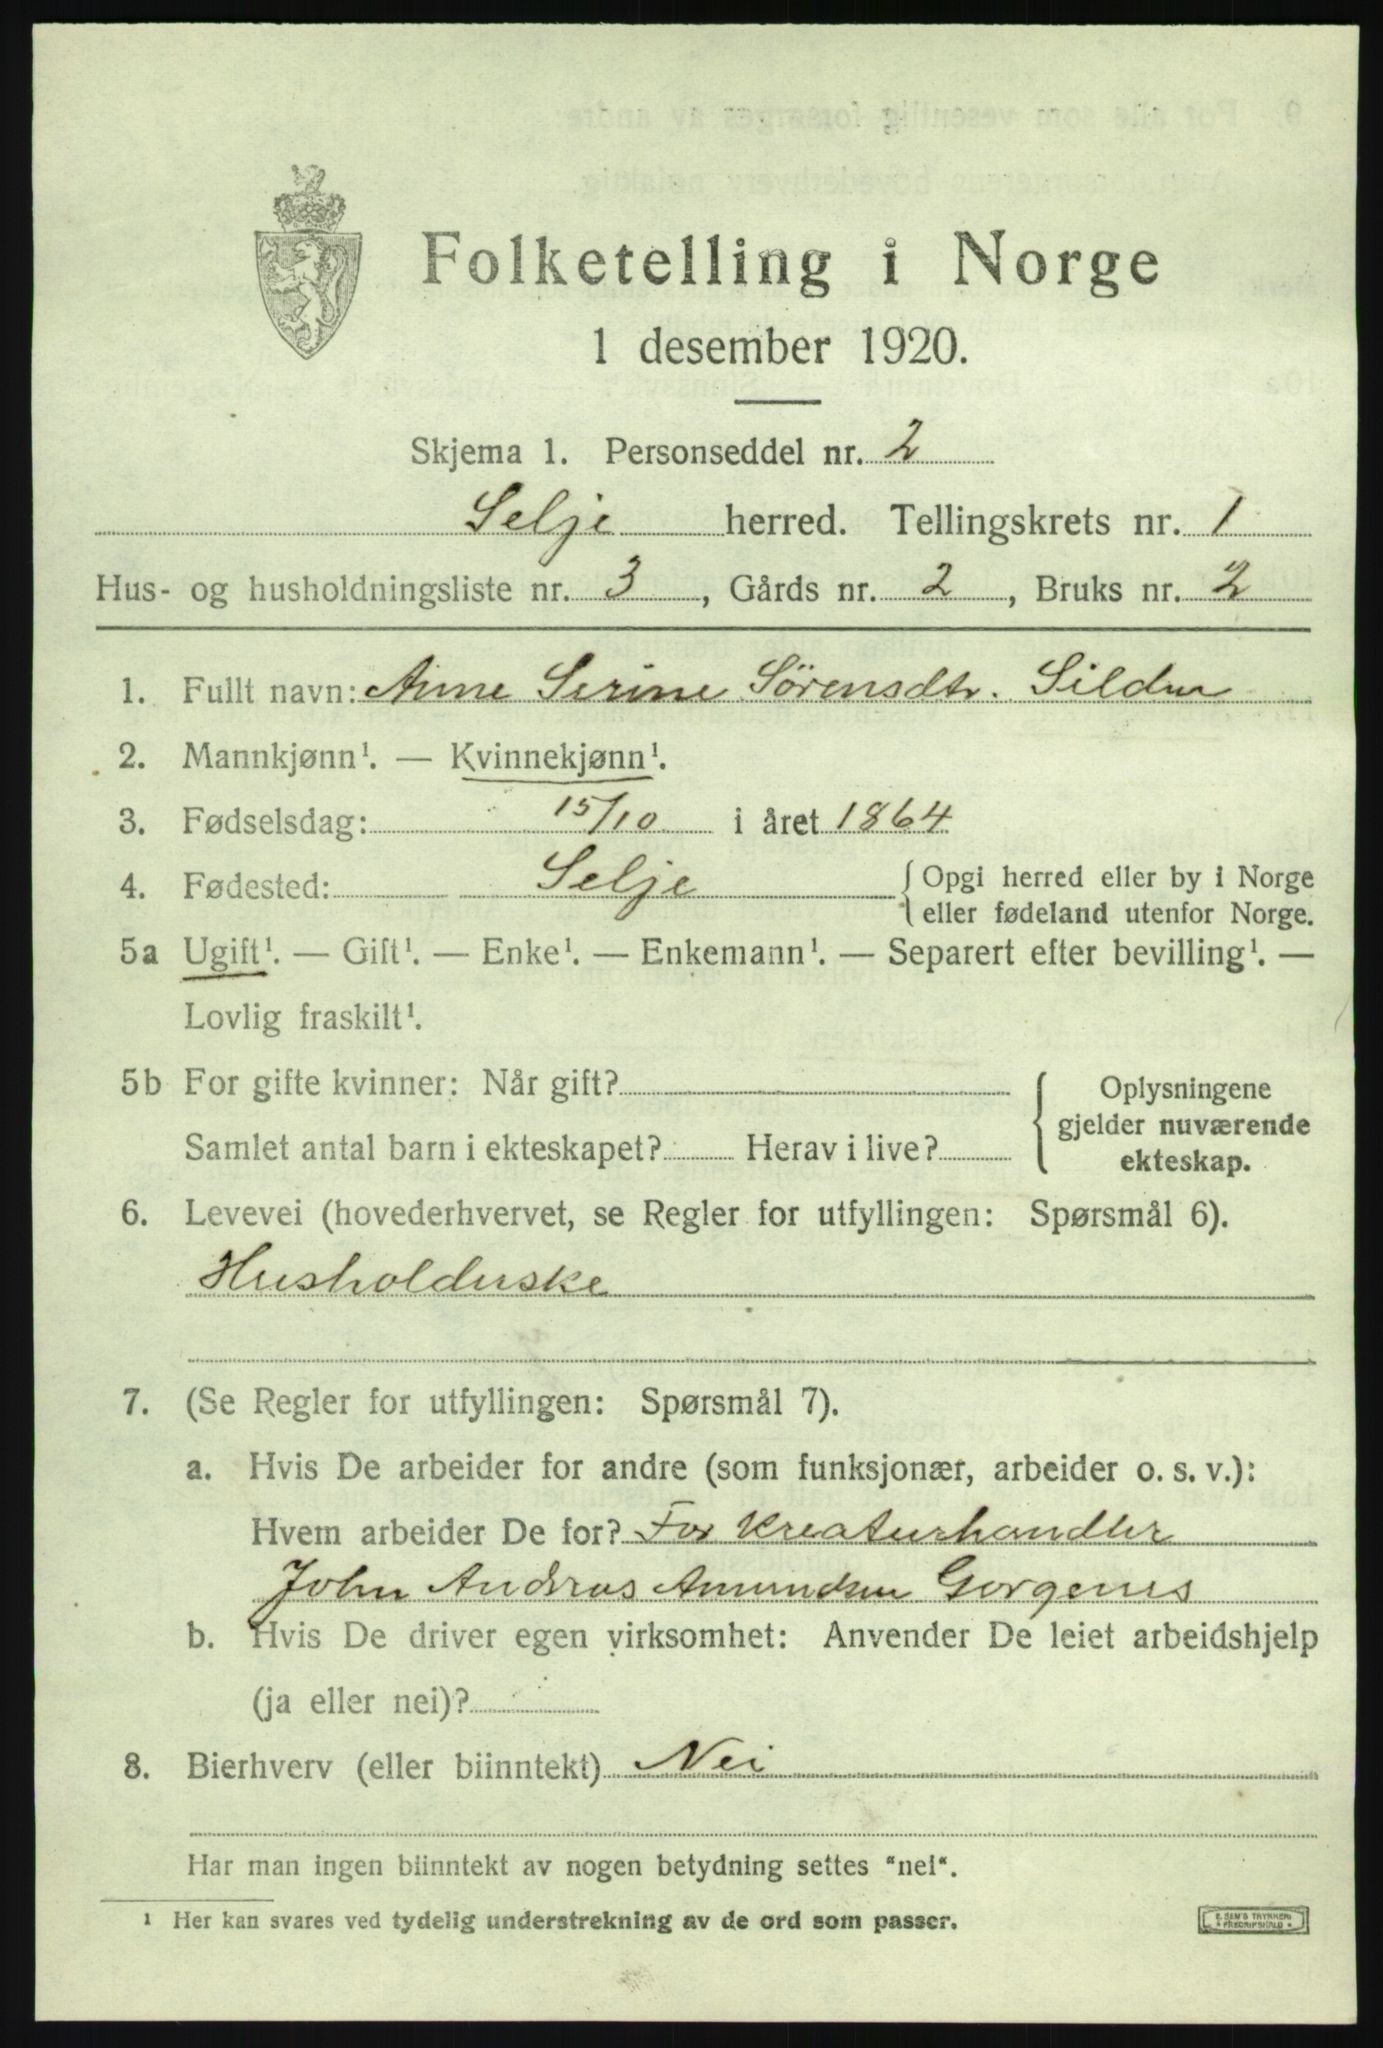 Folketelling i Norge
1 desember 1920.
Skjema 1. Personseddel nr. 2
Selje herred. Tellingskrets nr. 1
Hus- og husholdningsliste nr. 3, Gårds nr. 2, Bruks nr. 2
1. Fullt navn: Anne Serine Sörensdtr. Silden
2. Mannkjønn¹. — Kvinnekjønn¹.
3. Fødselsdag: 15/10 i året 1864
4. Fødested: Selje { Opgi herred eller by i Norge
eller fødeland utenfor Norge.
5a Ugift¹. — Gift¹. — Enke¹. — Enkemann¹. — Separert efter bevilling¹. —
Lovlig fraskilt¹.
5b For gifte kvinner: Når gift?
Samlet antal barn i ekteskapet? Herav i live?
Oplysningene
gjelder nuværende
ekteskap.
6. Levevei (hovederhvervet, se Regler for utfyllingen: Spørsmål 6).
Husholderske
7. (Se Regler for utfyllingen: Spørsmål 7).
a. Hvis De arbeider for andre (som funksjonær, arbeider o. s. v.):
Hvem arbeider De for? For Kreaturhandler
John Andreas Amundsen
b. Hvis De driver egen virksomhet: Anvender De leiet arbeidshjelp
(ja eller nei)?
8. Bierhverv (eller biinntekt) Nei
Har man ingen biinntekt av nogen betydning settes "nei".
¹ Her kan svares ved tydelig understrekning av de ord som passer.
E. SEM'S TRYKKERI
* FREDRIKSHALD *